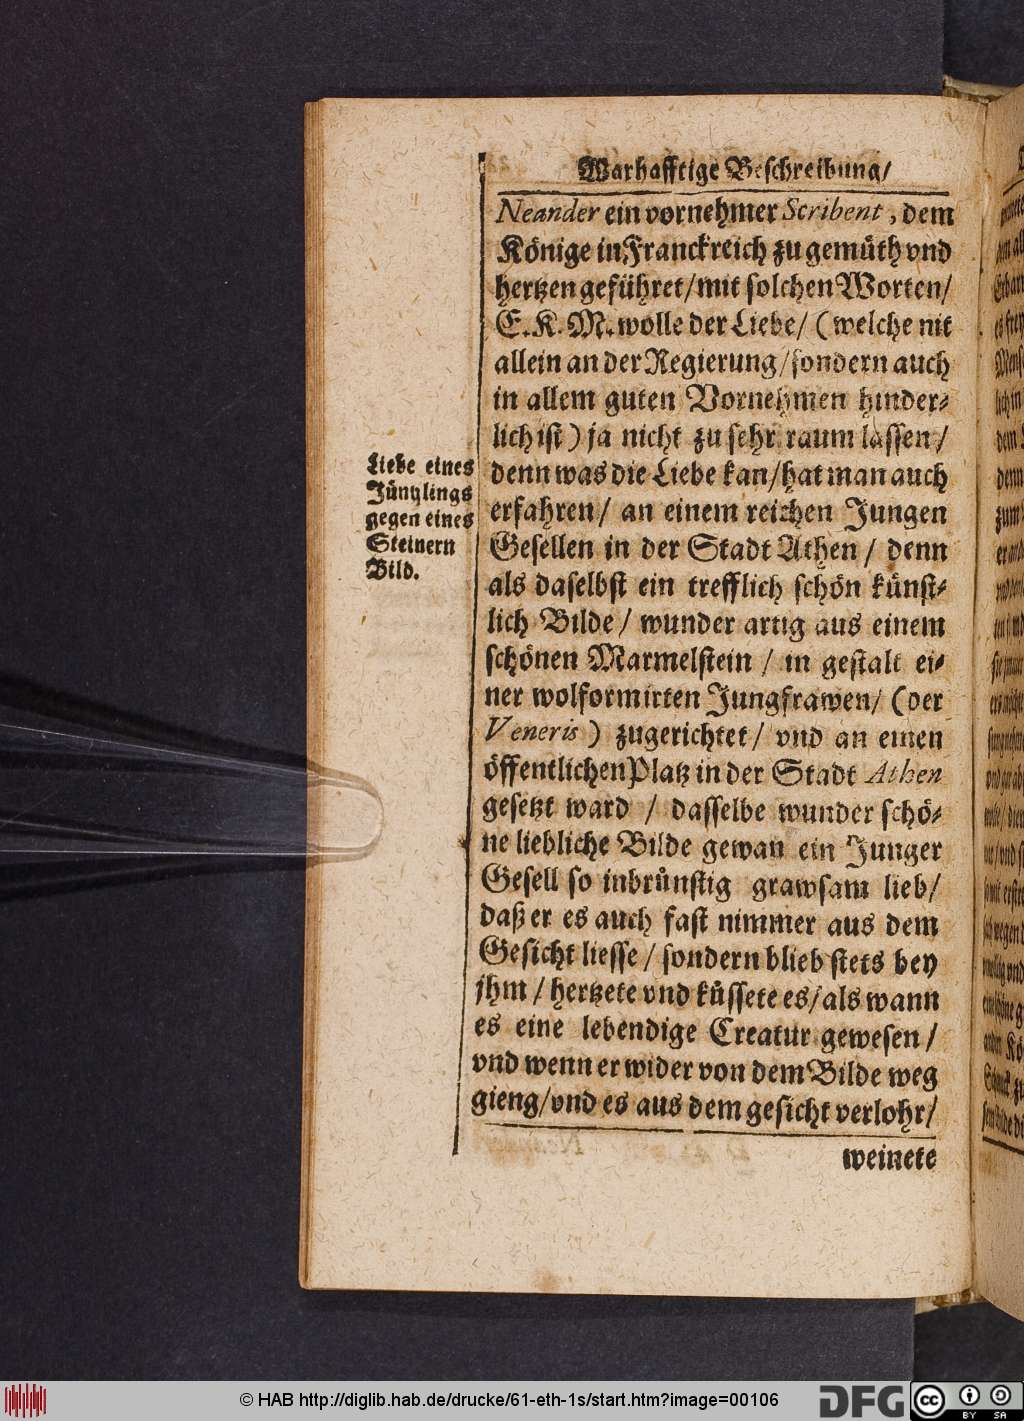 Warhafftige Beschreibung/
Neander ein vornehmer Scribent, dem
Könige in Franckreich zu gemüth vnd
hertzen geführet/ mit solchen Worten/
E. K. M. wolle der Liebe/ (welche nit
allein an der Regierung/ sondern auch
in allem guten Vornehmen hinder-
lich ist) ja nicht zu sehr raum lassen/
denn was die Liebe kan/ hat man auch
erfahren/ an einem reichen Jungen
Gesellen in der Stadt Athen/ denn
als daselbst ein trefflich schön künst-
lich Bilde/ wunder artig aus einem
schönen Marmelstein/ in gestalt ei-
ner wolformirten Jungfrawen/ (der
Veneris) zugerichtet/ vnd an einen
öffentlichen Platz in der Stadt Athen
gesetzt ward/ dasselbe wunder schö-
ne liebliche Bilde gewan ein Junger
Gesell so inbrünstig grawsam lieb/
daß er es auch fast nimmer aus dem
Gesicht liesse/ sondern blieb stets bey
jhm/ hertzete vnd küssete es/ als wann
es eine lebendige Creatur gewesen/
vnd wenn er wider von dem Bilde weg
gieng/ vnd es aus dem gesicht verlohr/
weinete
Liebe eines
Jünglings
gegen eines
Steinern
Bild.
© HAB http://diglib.hab.de/drucke/61-eth-1s/start.htm?image=00106
DFG
cc BY SA